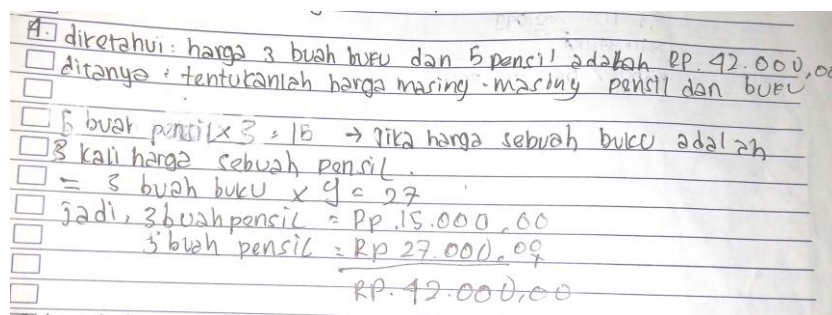 4. diketahui : harga 3 buah buku dan 5 pensil adalah RP. 42.000,00
ditanya : tentukanlah harga masing-masing pensil dan buku
5 buah pensil x 3 = 15 → jika harga sebuah buku adalah
3 kali harga sebuah pensil.
= 3 buah buku x 9 = 27
jadi, 3 buah pensil = Rp. 15.000,00
3 buah pensil = Rp 27.000,00
RP. 42.000,00